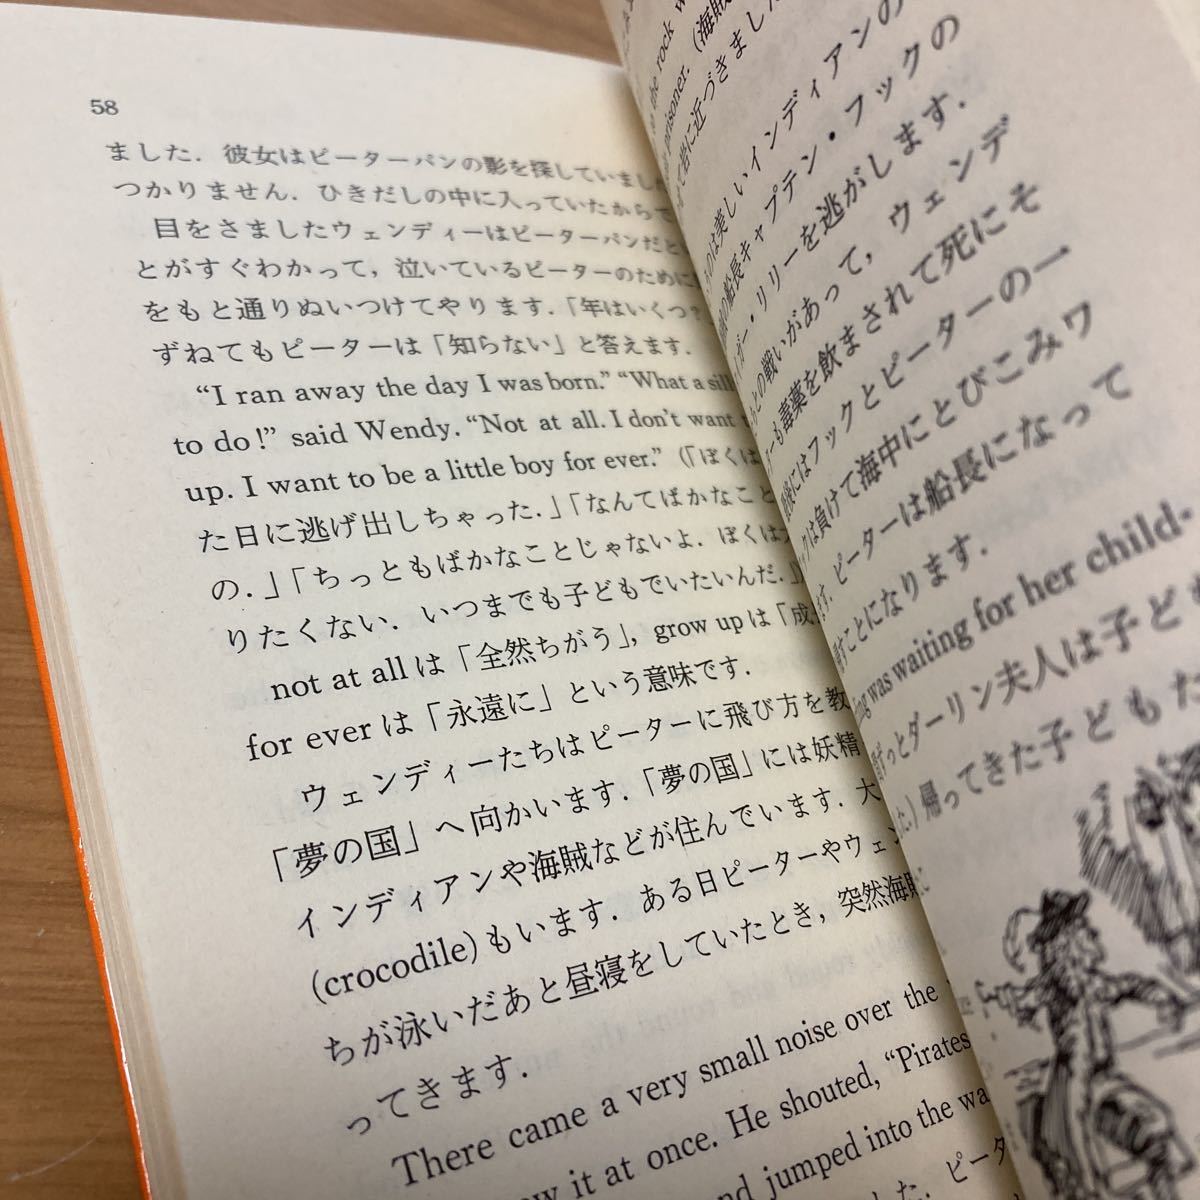 58
ました．彼女はピーターパンの影を探していまし
つかりません．ひきだしの中に入っていたからで
目をさましたウェンディーはピーターパンだと
とがすぐわかって，泣いているピーターのために
をもと通りぬいつけてやります．「年はいくつ？
ずねてもピーターは「知らない」と答えます．
“I ran away the day I was born.” “What a
to do!” said Wendy. “Not at all. I don't want
up. I want to be a little boy for ever.” (「ぼくは
た日に逃げ出しちゃった．」「なんてばかなこと
の．」「ちっともばかなことじゃないよ．ぼくは
りたくない．いつまでも子どもでいたいんだ．」
not at allは「全然ちがう」, grow upは「成
for everは「永遠に」という意味です．
ウェンディーたちはピーターに飛び方を教
「夢の国」へ向かいます．「夢の国」には妖精
インディアンや海賊などが住んでいます．大
(crocodile)もいます．ある日ピーターやウェン
ちが泳いだあと昼寝をしていたとき，突然海賊
ってきます．
There came a very small noise over the
it at once. He shouted, “Pirates
and jumped into the
した．ピータ
the rock
prisoner. (海賊
って岩に近づきました
のは美しいインディアンの
の船長キャプテン・フックの
ガー・リリーを逃がします．
との戦いがあって，ウェンデ
ーも毒薬を飲まされて死にそ
後にはフックとピーターの一
クは負けて海中にとびこみワ
ピーターは船長になって
すことになります．
was waiting for her child-
っとダーリン夫人は子ども
帰ってきた子どもた